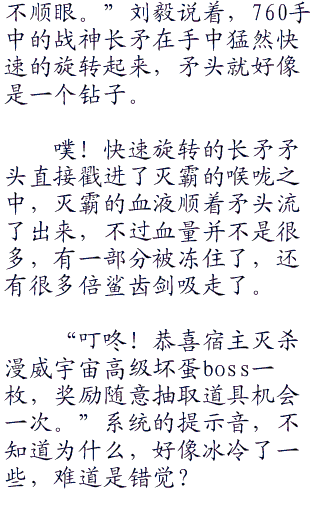 不顺眼。”刘毅说着，760手
中的战神长矛在手中猛然快
速的旋转起来，矛头就好像
是一个钻子。
噗！快速旋转的长矛矛
头直接戳进了灭霸的喉咙之
中，灭霸的血液顺着矛头流
了出来，不过血量并不是很
多，有一部分被冻住了，还
有很多倍鲨齿剑吸走了。
“叮咚！恭喜宿主灭杀
漫威宇宙高级坏蛋boss一
枚，奖励随意抽取道具机会
一次。”系统的提示音，不
知道为什么，好像冰冷了一
些，难道是错觉？